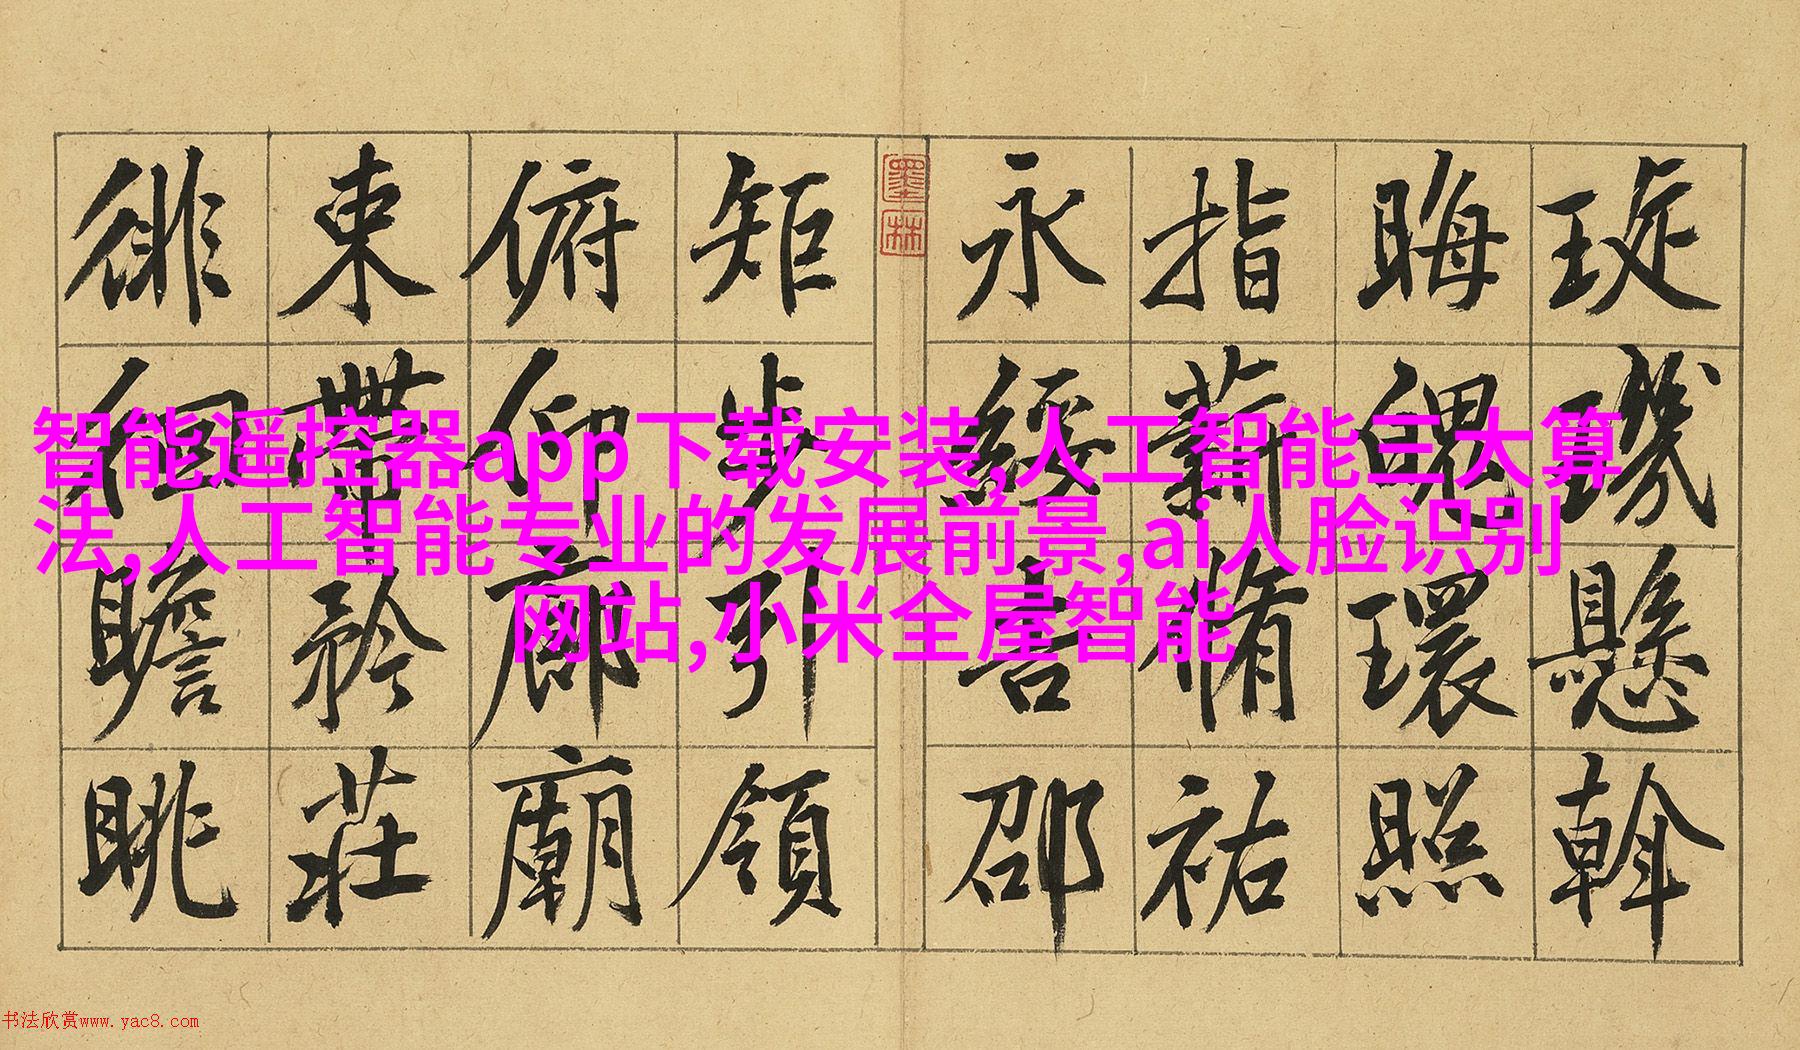 智能遥控器app下载安装,人工智能三大算
法,人工智能专业的发展前景,ai人脸识别
网站,小米全屋智能
璇璣懸斡
晦魄環照
指薪脩祐
永綏吉邵
墨林
矩步引領
俯仰廊廟
束帶矜莊
徘徊瞻眺
书法欣赏www.yac8.com